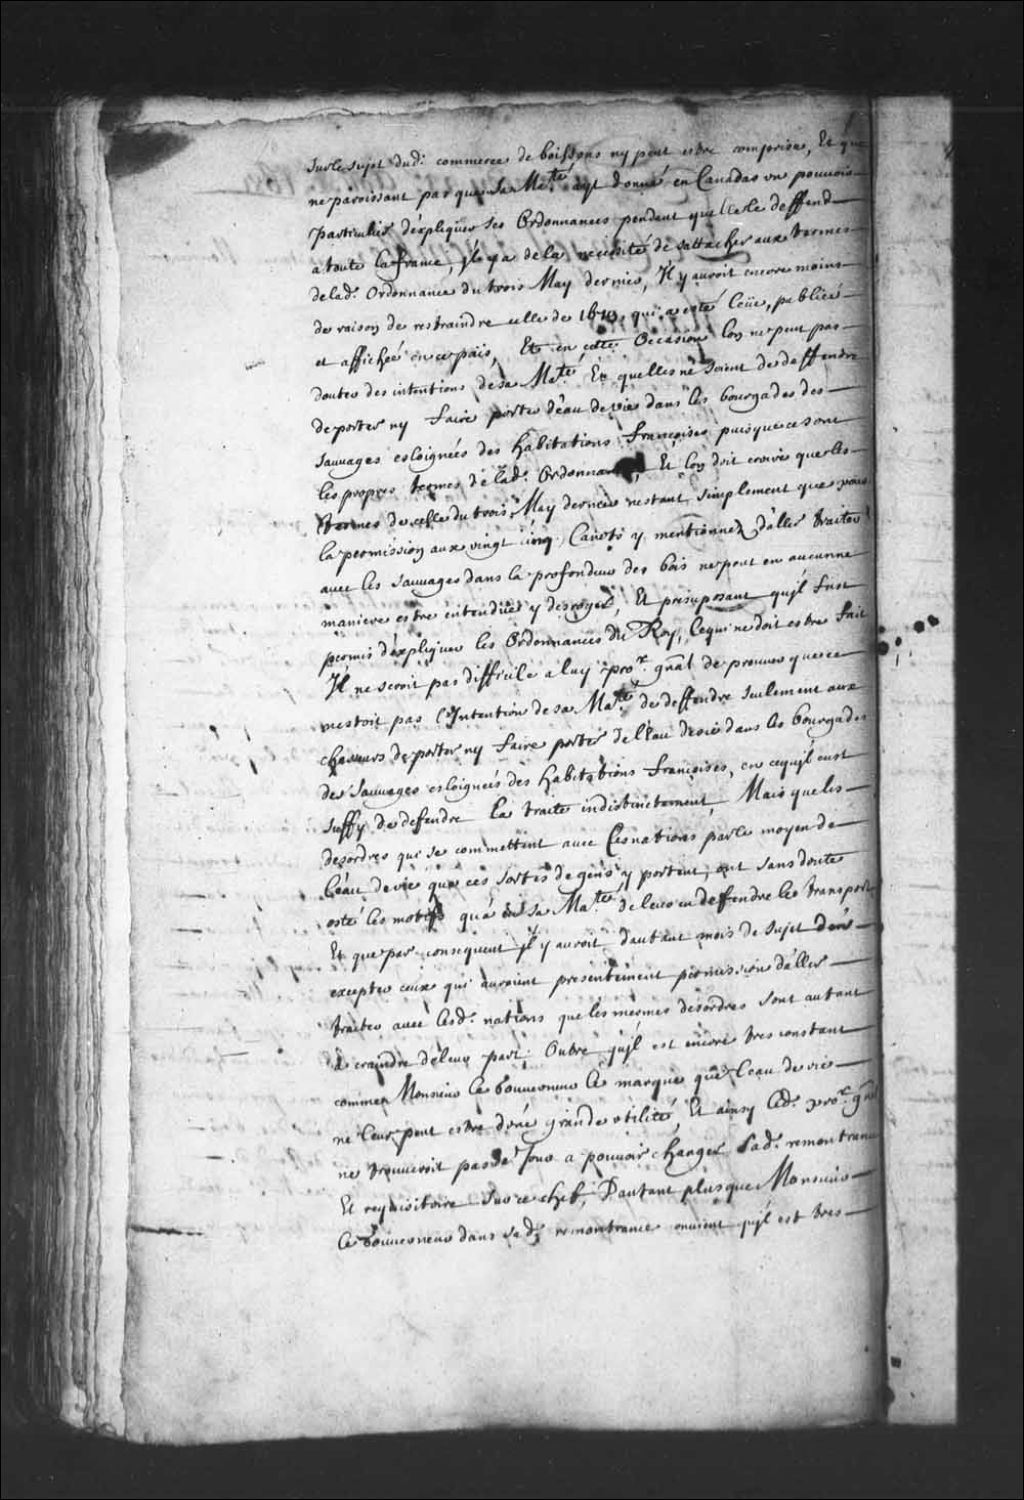 Sur le sujet dud: commerce de boissons ny peut estre comprise, Et que
ne paroissant pas que sa Ma.té ayt donné en Canadas un pouvoir
particulier d'expliquer ses Ordonnances pendant quelle le deffend
a toute la france, jl y a de la necessité de s'attacher aux termes
de lad. Ordonnance du trois May dernier, Jl y auroit encore moins
de raison de restraindre celle de 1679, qui a esté leüe, publiée
et affichée en ce païs, Et en cette Occasion lon ne peut pas
douter des intentions de sa Ma.té Et quelles ne soient de deffendre
de porter ny faire porter d'eau de vie dans les bourgades des
sauuages esloignées des habitations françoises puisque ce sont
les propres termes de lad. Ordonnance, Et lon doit croire que les
termes de celle du trois May dernier nestant simplement que pour
la permission aux vingt cinq Canots y mentionnez d'aller traiter
auec les sauuages dans la profondeur des bois ne peut en aucunne
maniere estre entendüe y desroger, Et présuposant qujl fust
permis d'expliquer les Ordonnances du Roy, ce qui ne doit estre fait
Jl ne seroit pas difficile a luy pro.r gnãl de prouuer que ce
nestoit pas l'Intention de sa Ma.té de deffendre seulement aux
chasseurs de porter ny faire porter de l'eau de vie dans les bourgades
des sauuages esloignées des habitations francoises, en ce qujl eust
suffy de defendre la traite indistinctement, Mais que les
desordres qui se commettent auec les nations par le moyen de
l'eau de vie que ces sortes de gens y portent, ont sans doute
esté les motifs qu'a eu sa Ma.té de leur en deffendre le transport
Et que par consequent jl y auroit dautant mois de sujet d'en
excepter ceux qui auroient presentement permission d'aller
traiter auec lesd. nations que les mesmes desordres sont autant
a craindre de leur part, Outre qujl est encore tres constant
comme Monsieur le Gouuerneur le marque que l'eau de vie
ne leur peut estre d'vne grande vtilité, Et ainsy led. pro.r gnãl
ne trouueroit pas de Jour a pouuoir changer sad. remontrance
Et requisitoire sur ce chef, D'autant plus que Monsieur
le Gouuerneur dans sad. remontrance conuient qujl est tres